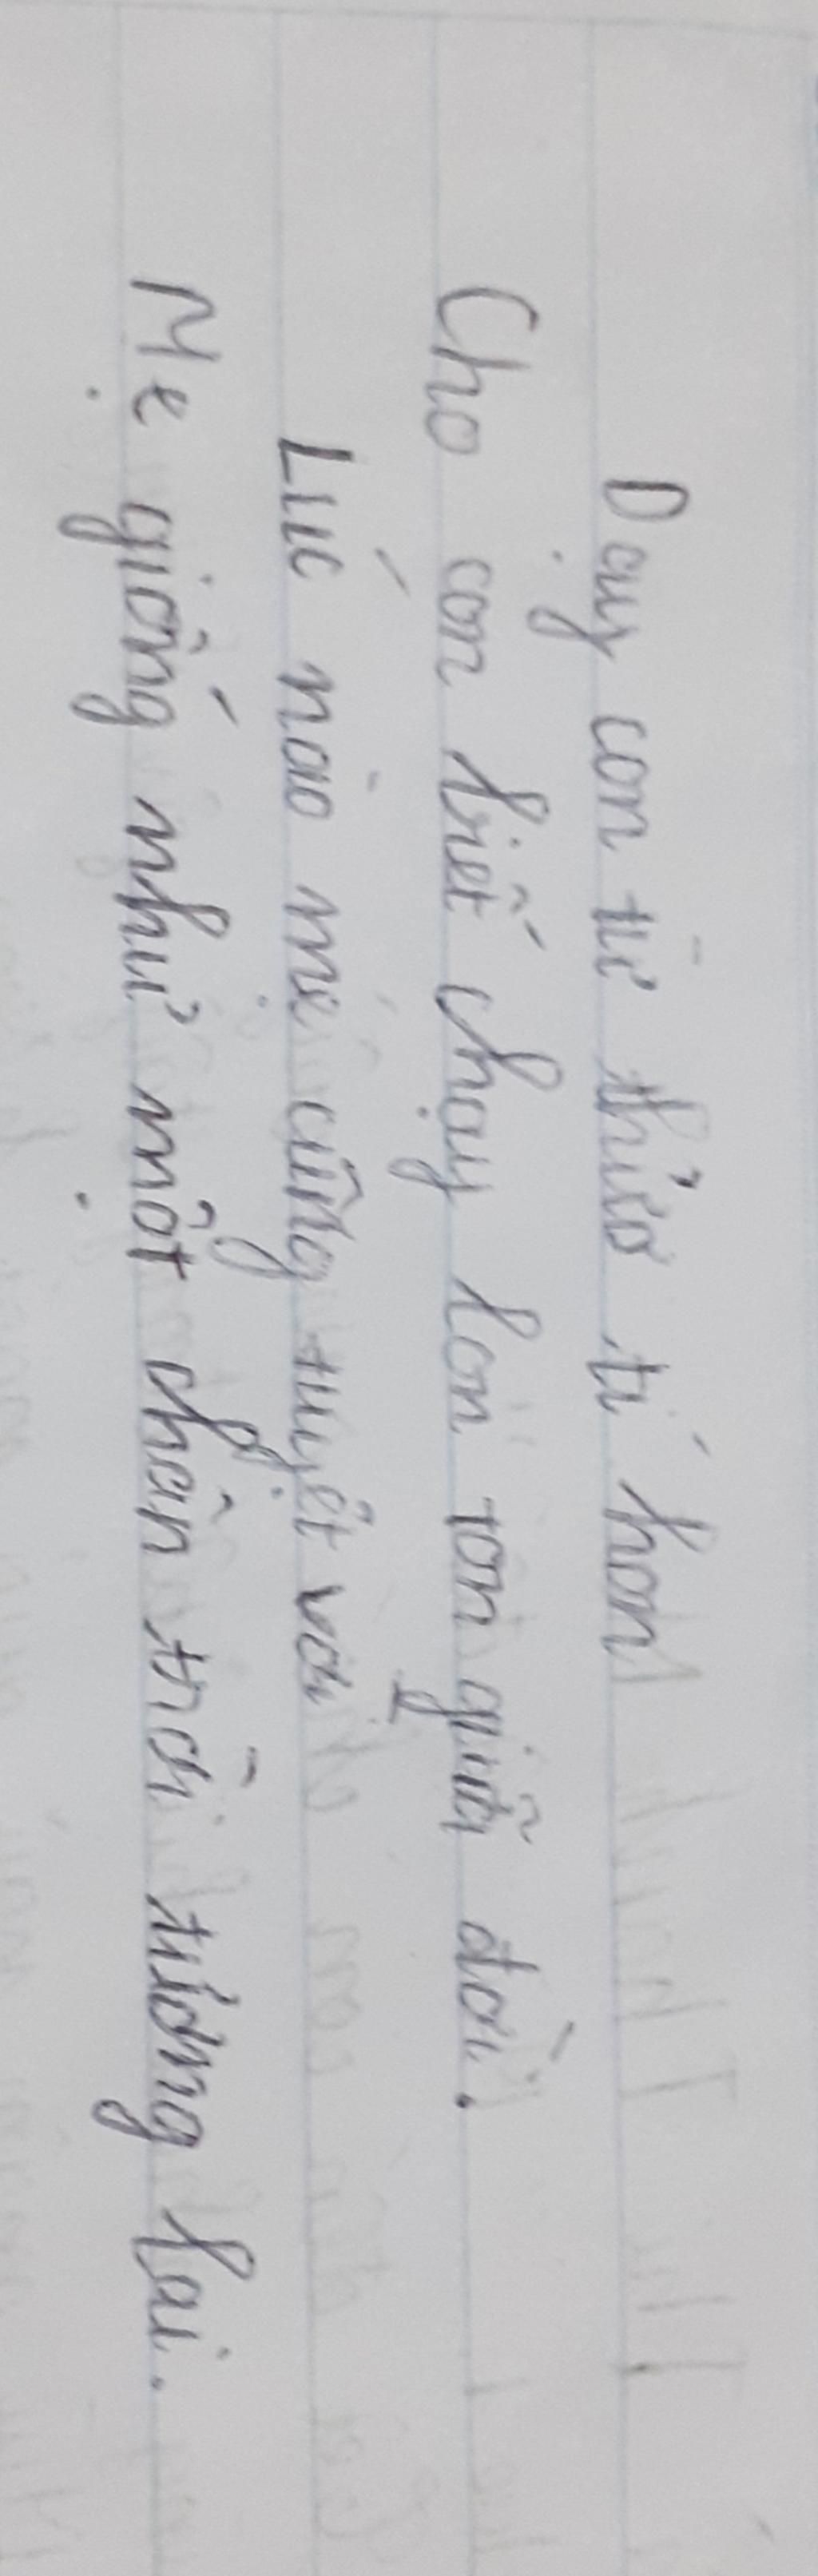 Dạy con từ thủa tí hon
Cho con biết chạy lon ton giữa đời.
Lúc nào mẹ cũng tuyệt vời
Mẹ giống như một chân trời tương lai.